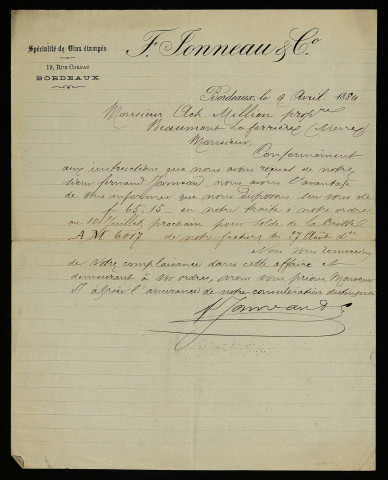 Spécialité de Vins étampés
F. Jonneau & Cº
19, Rue Cornac
BORDEAUX
Bordeaux, le 9 Avril 1884
Monsieur Ach. Million propre
Beaumont Laferrière (Nièvre)
Monsieur,
Conformément
aux instructions que nous avons reçues de notre
sieur fernand Jonneau, nous avons l'avantage
de vous informer que nous disposons sur vous de
f 65.15 en notre traite à notre ordre
au 10 Juillet prochain pour Solde de la
A M 6017 de notre facture du 27 Août dr
Nous vous remercions
de votre complaisance dans cette affaire et
demeurant à vos ordres, nous vous prions, Monsieur
d'agréer l'assurance de notre considération distinguée
F. Jonneau & Cº